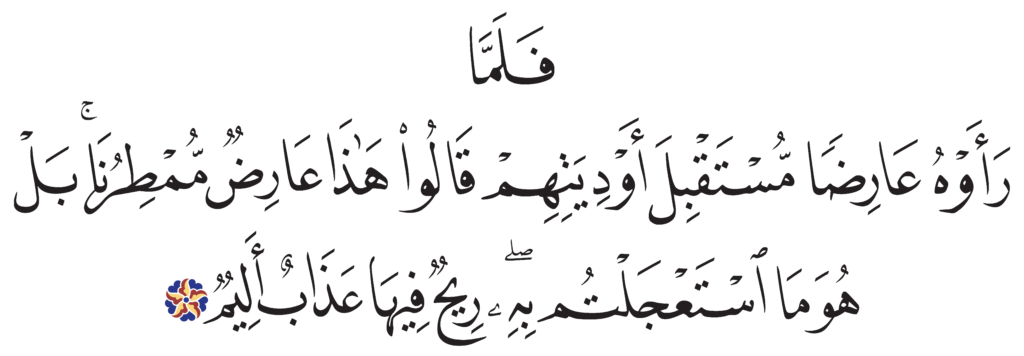 فَلَمَّا
رَأَوْهُ عَارِضًا مُّسْتَقْبِلَ أَوْدِيَتِهِمْ قَالُوا۟ هَـٰذَا عَارِضٌ مُّمْطِرُنَا ۚ بَلْ
هُوَ مَا ٱسْتَعْجَلْتُم بِهِۦ ۖ رِيحٌ فِيهَا عَذَابٌ أَلِيمٌ